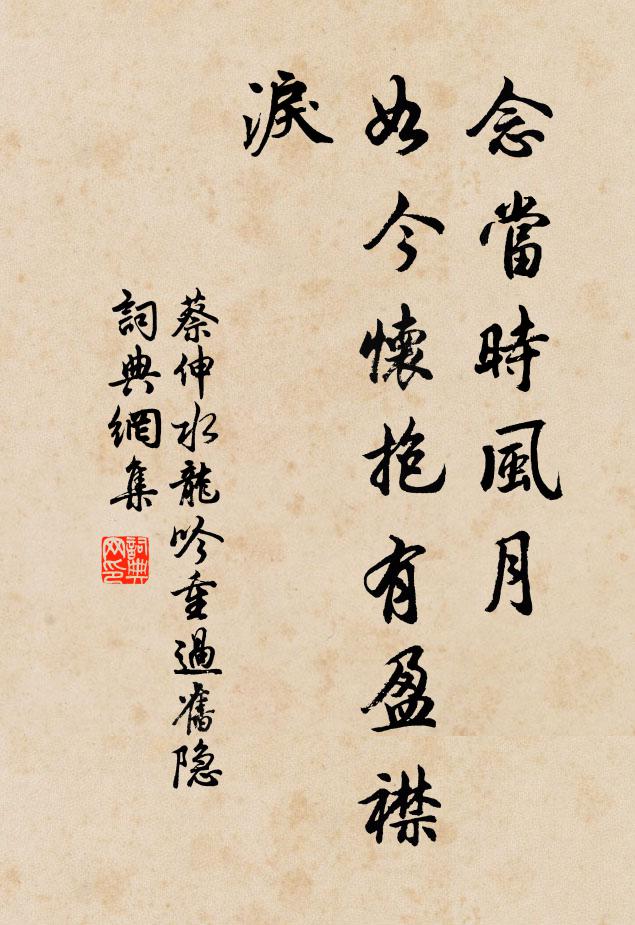 念當時風月
如今懷抱有盈襟
淚
蔡伸水龍吟重過舊隐
詞典網集
詞典網印